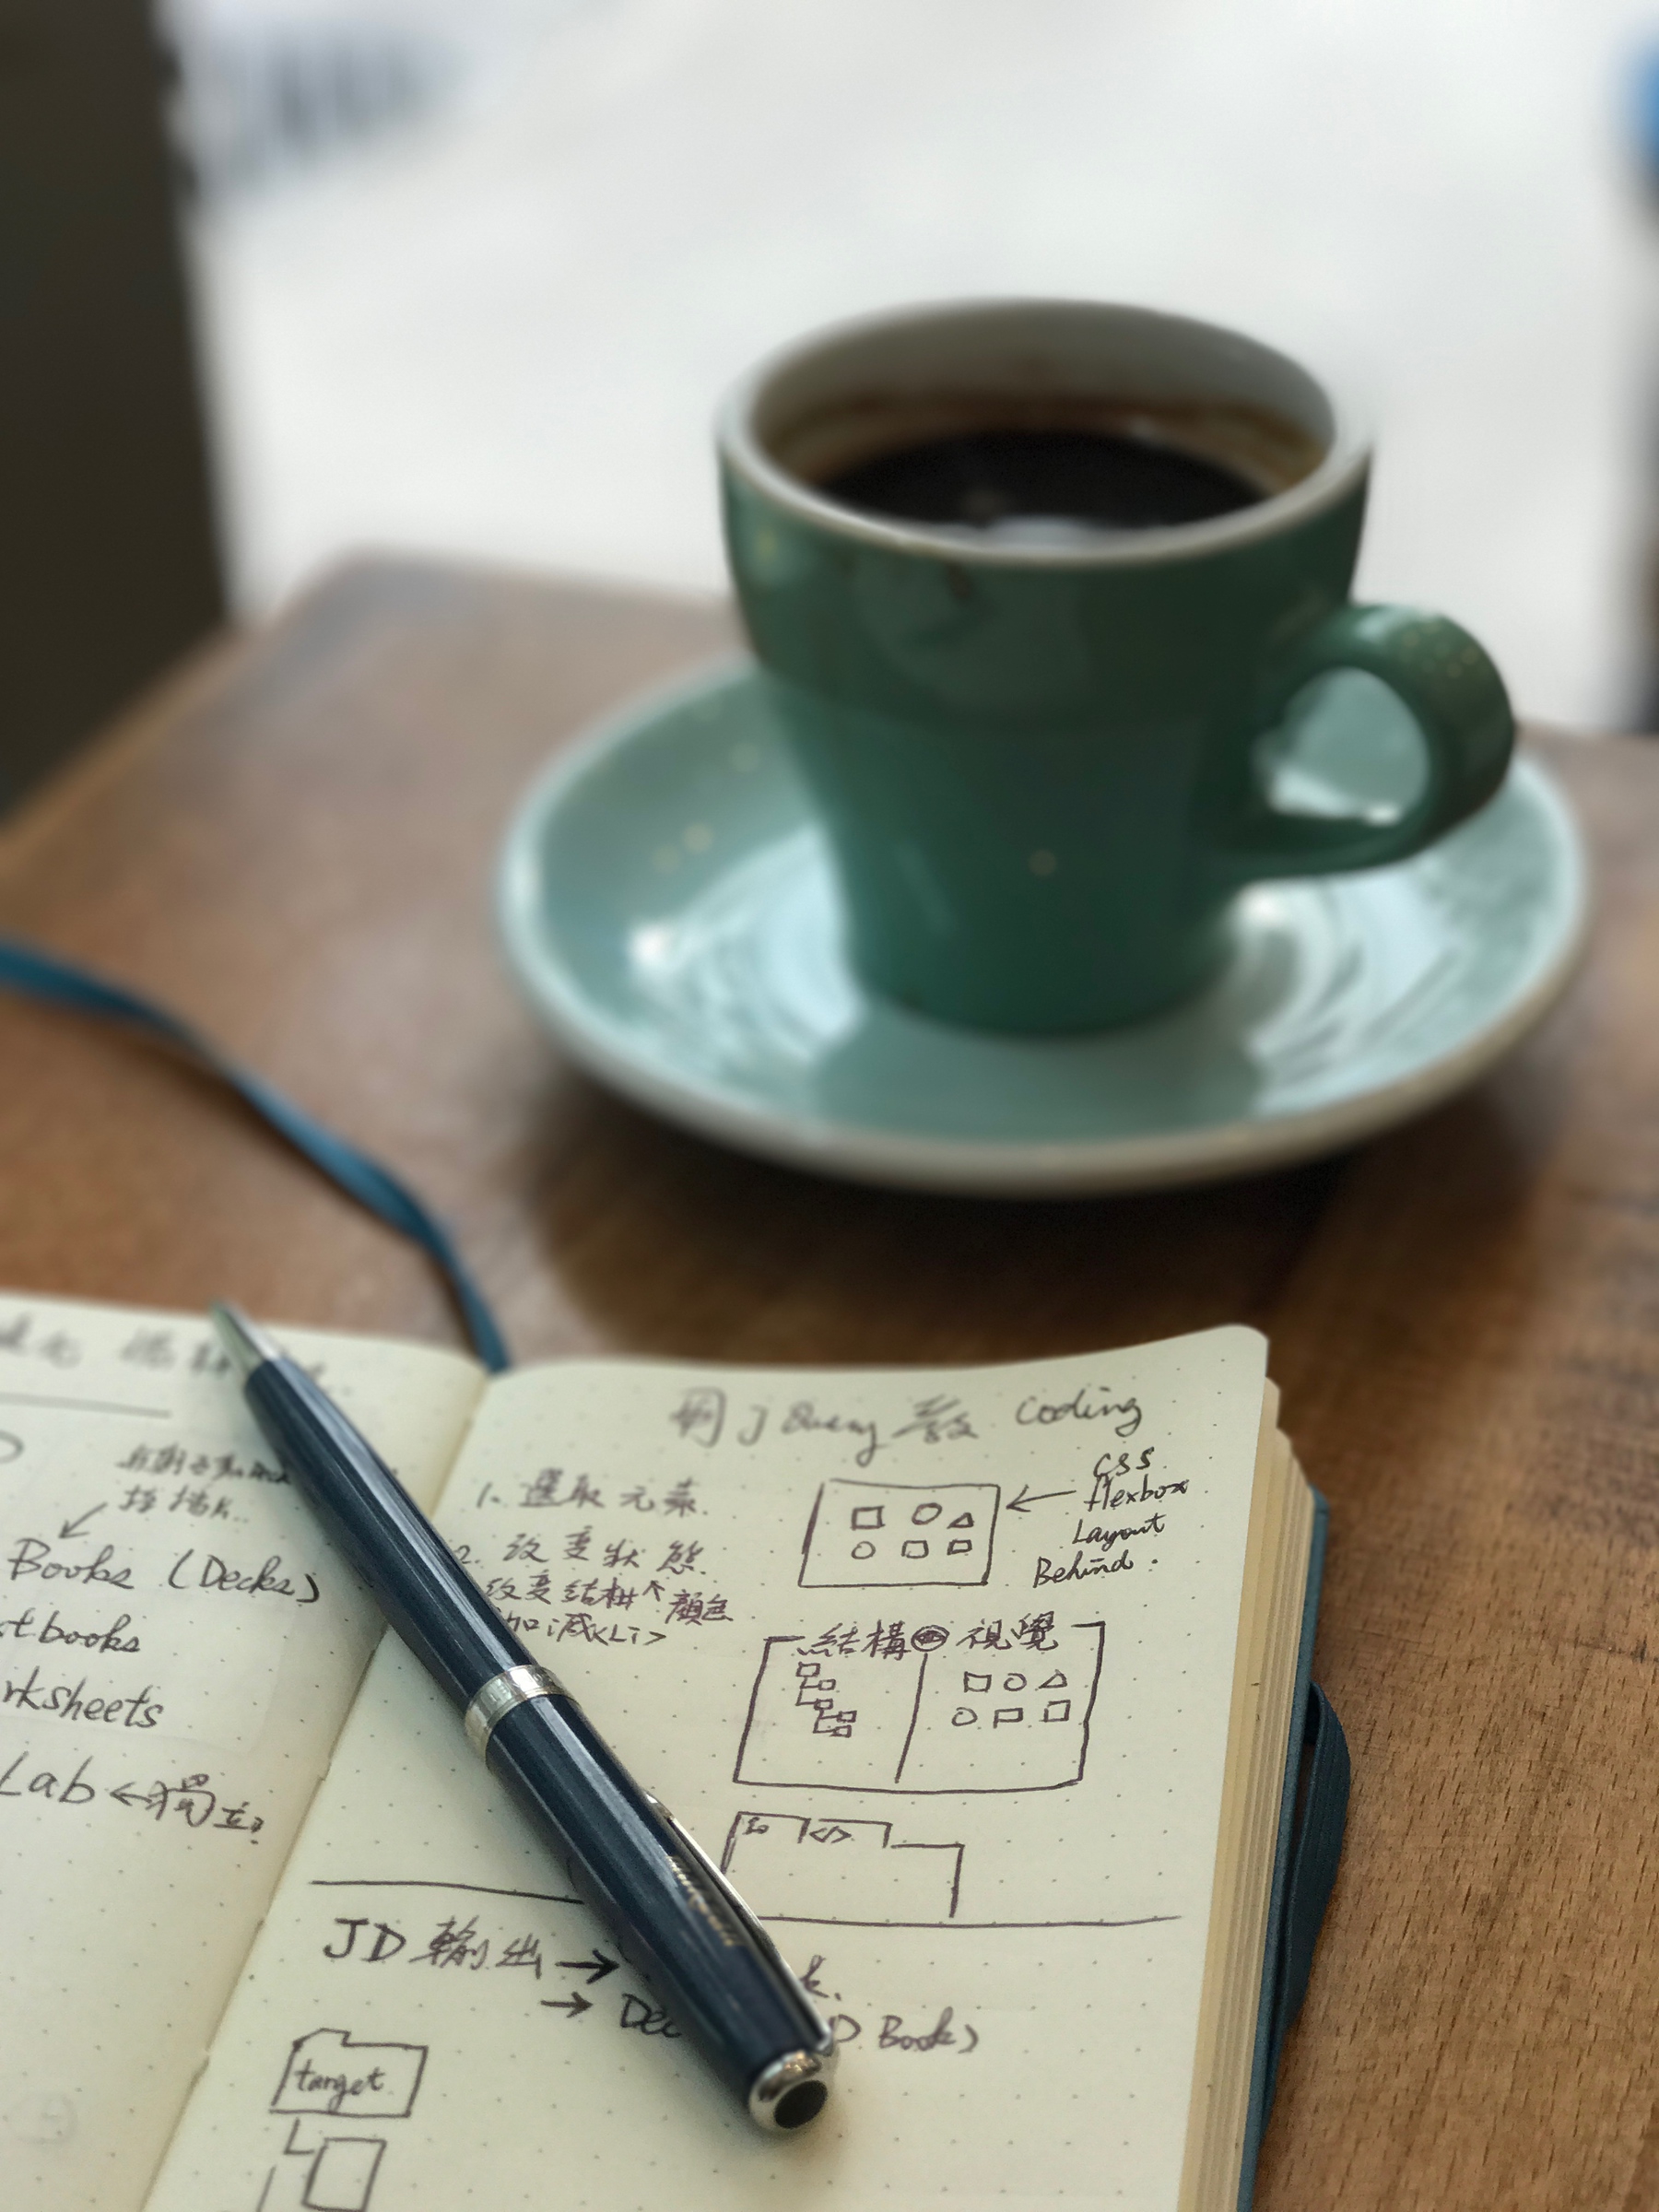 Books (Decks)
tbooks
rksheets
Lab ← 獨立?
用 jQuery 教 coding
1. 選取元素.
2. 改变狀態.
改变结構 顏色
加減<Li>
CSS
flexbox
Layout
Behind.
結構 視覺
</>
JD 輸出 →
→ Dec
Book)
target